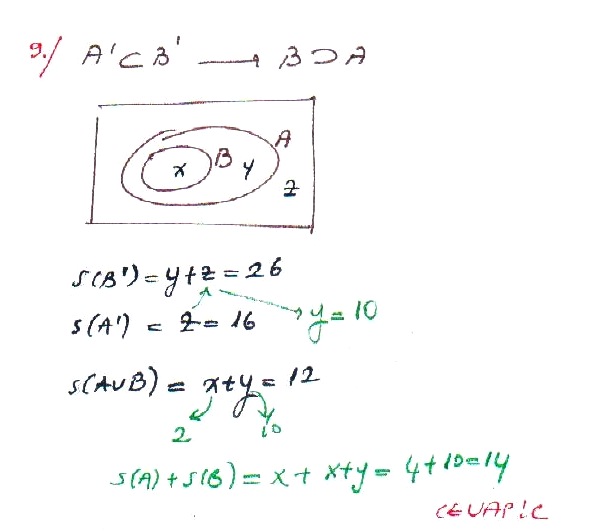 9./ A' ⊂ B' → B ⊃ A
A
B
x y
z
s(B') = y+z = 26
y = 10
s(A') = z = 16
s(A∪B) = x+y = 12
2 10
s(A) + s(B) = x + x+y = 4+10=14
CEVAP: C